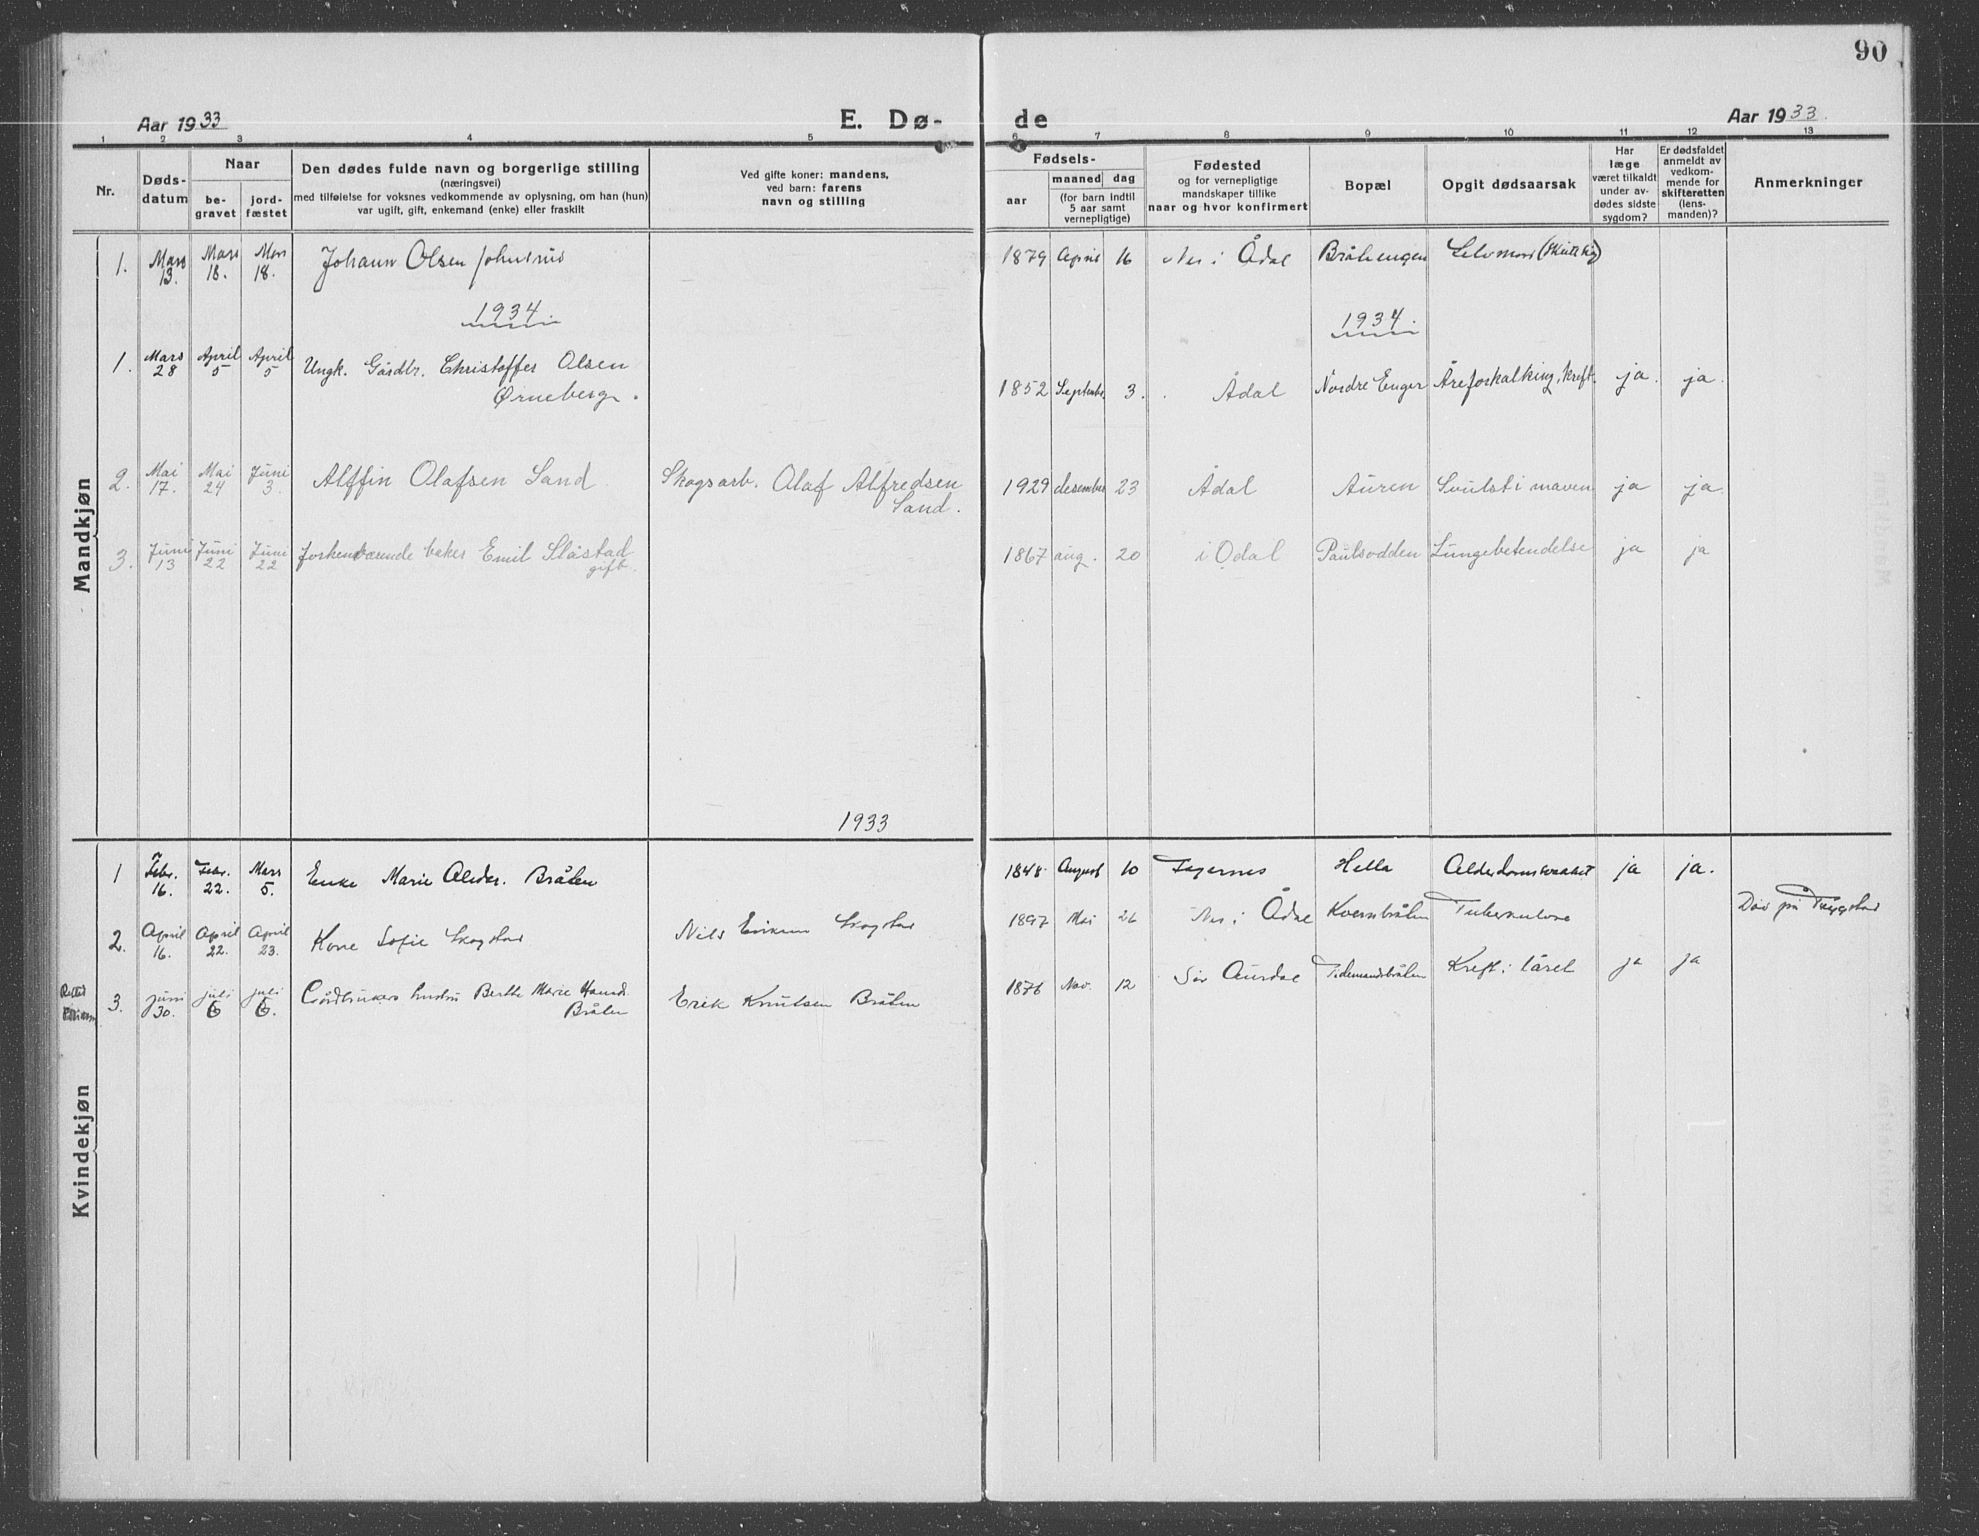 90
Aar 1933 E. Dø- de Aar 1933.
1 2 3 4 5 6 7 8 9 10 11 12 13
Nr.
Døds-
datum
Naar
be-
gravet
jord-
fæstet
Den dødes fulde navn og borgerlige stilling
(næringsvei)
med tilføielse for voksnes vedkommende av oplysning, om han (hun)
var ugift, gift, enkemand (enke) eller fraskilt
Ved gifte koner: mandens,
ved barn: farens
navn og stilling
Fødsels-
aar
maaned dag
(for barn indtil
5 aar samt
vernepligtige)
Fødested
og for vernepligtige
mandskaper tillike
naar og hvor konfirmert
Bopæl
Opgit dødsaarsak
Har
læge
været tilkaldt
under av-
dødes sidste
sygdom?
Er dødsfaldet
anmeldt av
vedkom-
mende for
skifteretten
(lens-
manden)?
Anmerkninger
Mandkjøn
1. Mars 13. Mars 18. Mars 18. Johann Olsen Johnsrud 1879 April 16 Nes i Ådal Bråtenengen Selvmord
1934. 1934.
1. Mars 28 April 5 April 5 Ungk. Gårdbr. Christoffer Olsen
Ørneberg. 1852 September 3. Ådal Nordre Enger Åreforkalking, kreft. ja. ja.
2. Mai 17. Mai 24 Juni 3. Alffin Olafsen Sand. Skogsarb. Olaf Alfredsen
Sand. 1929 desember 23 Ådal Auren Svulst i maven ja ja.
3. Juni 13 Juni 22 Juni 22 forhenværende baker Emil Slåstad
gift. 1867 aug. 20 i Odal Paulsodden Lungebetendelse ja ja
1933
Kvindekjøn
1 Febr. 16. Febr. 22. Mars 5. Enke Marie Alder. Bråten 1848 August 10 Fagernes Hella Alderdomssvakhet ja ja.
2. April 16. April 22. April 23. Kone Sofie Skogstad Nils Eriksen Skogstad 1897 Mai 26 Nes i Ådal Kvernbråten Tuberkulose Død på
3. Juni 30. juli 6 juli 6. Gårdbrukers hustru Berthe Marie
Bråten Erik Knutsen Bråten 1876 Nov. 12 Sør Aurdal Tidemandsbråten Kreft i låret ja ja